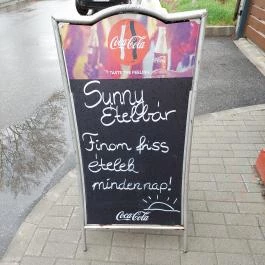 Coca-Cola
TASTE THE FEELING
Sunny
Ételbár
Finom friss
ételek
minden nap!
Coca-Cola